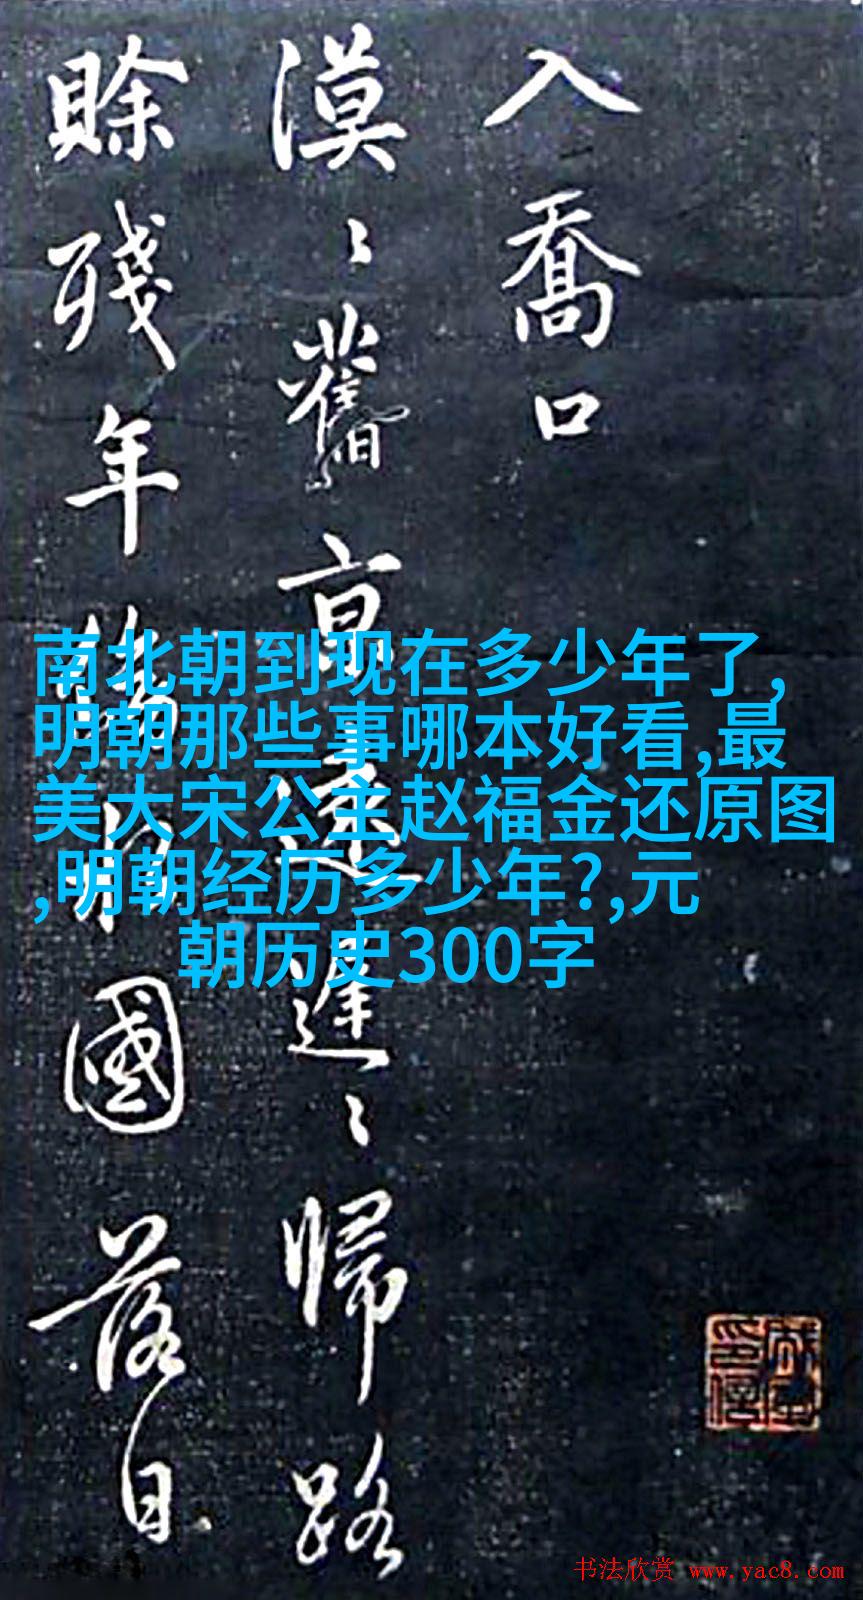 入喬口
漠〻舊京遠遲〻歸路
賒殘年傍水國落日
南北朝到现在多少年了,
明朝那些事哪本好看,最
美大宋公主赵福金还原图
,明朝经历多少年?,元
朝历史300字
书法欣赏 www.yac8.com